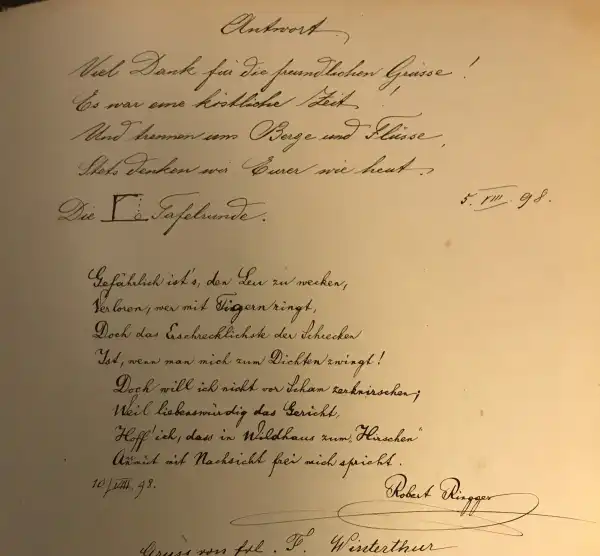 Antwort.
Viel Dank für die freundlichen Grüsse!
Es war eine köstliche Zeit!
Und trennen uns Berge und Flüsse,
Stets denken wir Eurer wie heut.
Die Tafelrunde.
5. VIII. 98.
Gefährlich ist's, den Leu zu wecken,
Verloren, wer mit Tigern ringt,
Doch das Erschrecklichste der Schrecken
Ist, wenn man mich zum Dichten zwingt!
Doch will ich nicht vor Scham zerknirschen;
Weil liebenswürdig das Gericht,
Hoff' ich, dass in Wildhaus zum "Hirschen"
Anmut mit Nachsicht frei mich spricht.
10/VIII. 98.
Robert Ringger
Gruss von frl. F. Winterthur